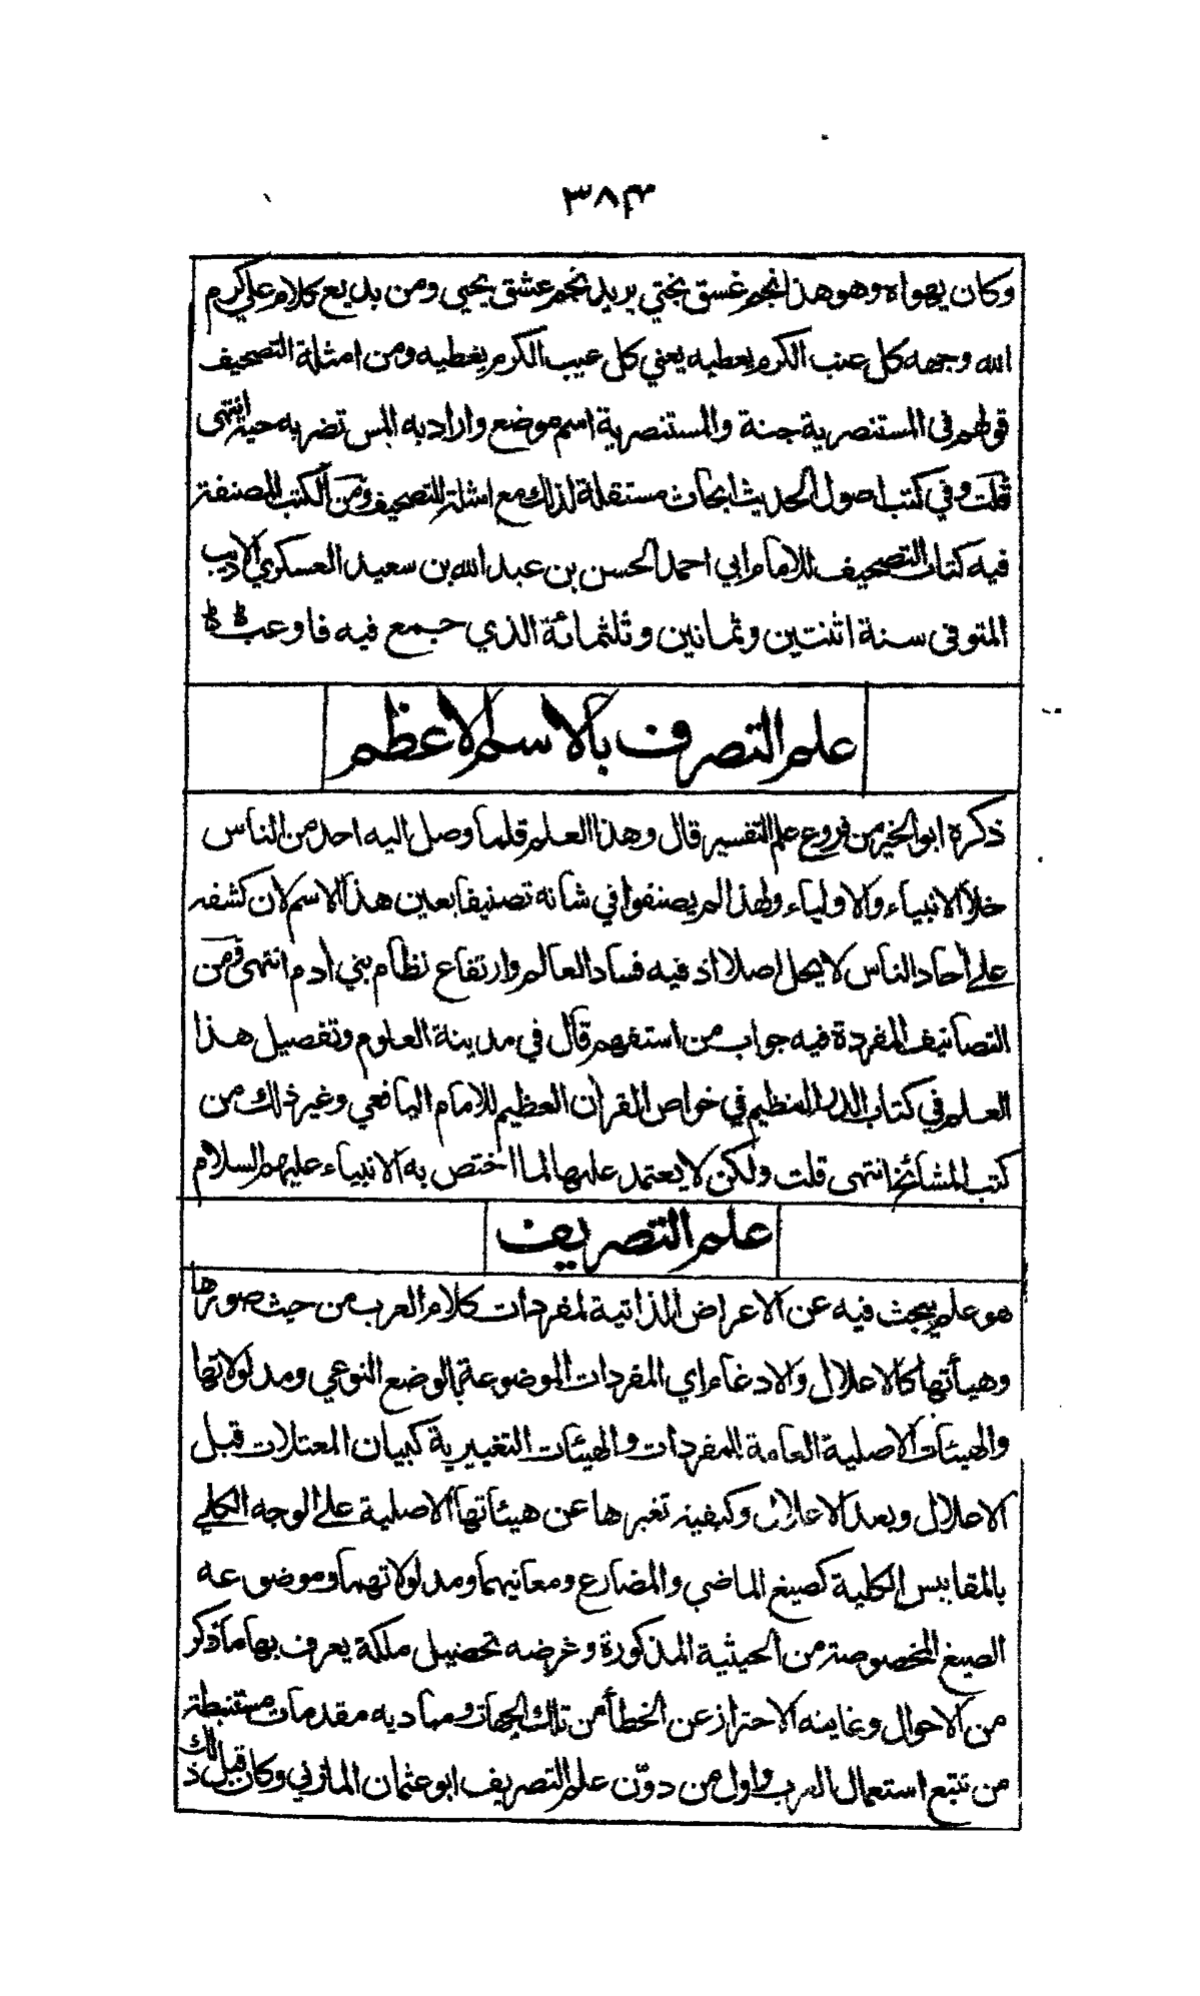 ٣٨۴
وكان يهواه وهو هذا نجم غسق بختي يريد نجم عشق يحيى ومن بديع كلام علي كرم
الله وجهه كل عنب الكرم يعطيه يعني كل عيب الكرم يغطيه ومن امثلة التصحيف
قولهم في المستنصرية جنة والمستنصرية اسم موضع واراد به المس تضربه حية انتهى
قلت وفي كتب اصول الحديث ابحاث مستقلة لذلك مع امثلة التصحيف ومن الكتب المصنفة
فيه كتاب التصحيف للامام ابي احمد الحسن بن عبد الله بن سعيد العسكري الاديب
المتوفى سنة اثنتين وثمانين وثلثمائة الذي جمع فيه فاوعب
علم التصرف بالاسم الاعظم
ذكره ابو الخير من فروع علم التفسير قال وهذا العلم قلما وصل اليه احد من الناس
خلا الانبياء والاولياء ولهذا لم يصنفوا في شانه تصنيفا بعين هذا الاسم لان كشفه
على آحاد الناس لا يحل اصلا اذ فيه فساد العالم وارتفاع نظام بني ادم انتهى ومن
التصانيف المفردة فيه جواب من استفهم قال في مدينة العلوم وتفصيل هذا
العلم في كتاب الدر النظيم في خواص القران العظيم للامام اليافعي وغير ذلك من
كتب المشائخ انتهى قلت ولكن لا يعتمد عليها لما اختص به الانبياء عليهم السلام
علم التصريف
هو علم يبحث فيه عن الاعراض الذاتية لمفردات كلام العرب من حيث صورها
وهيأتها كالاعلال والادغام اي المفردات الموضوعة بالوضع النوعي ومدلولاتها
والهيئات الاصلية العامة للمفردات والهيئات التغييرية كبيان المعتلات قبل
الاعلال وبعد الاعلال وكيفية تغيرها عن هيئاتها الاصلية على الوجه الكلي
بالمقاييس الكلية كصيغ الماضي والمضارع ومعانيهما ومدلولاتهما وموضوعه
الصيغ المخصوصة من الحيثية المذكورة وغرضه تحصيل ملكة يعرف بها ما ذكر
من الاحوال وغايته الاحتراز عن الخطأ من تلك الجهات ومباديه مقدمات مستنبطة
من تتبع استعمال العرب واول من دوّن علم التصريف ابو عثمان المازني وكان قبل ذلك